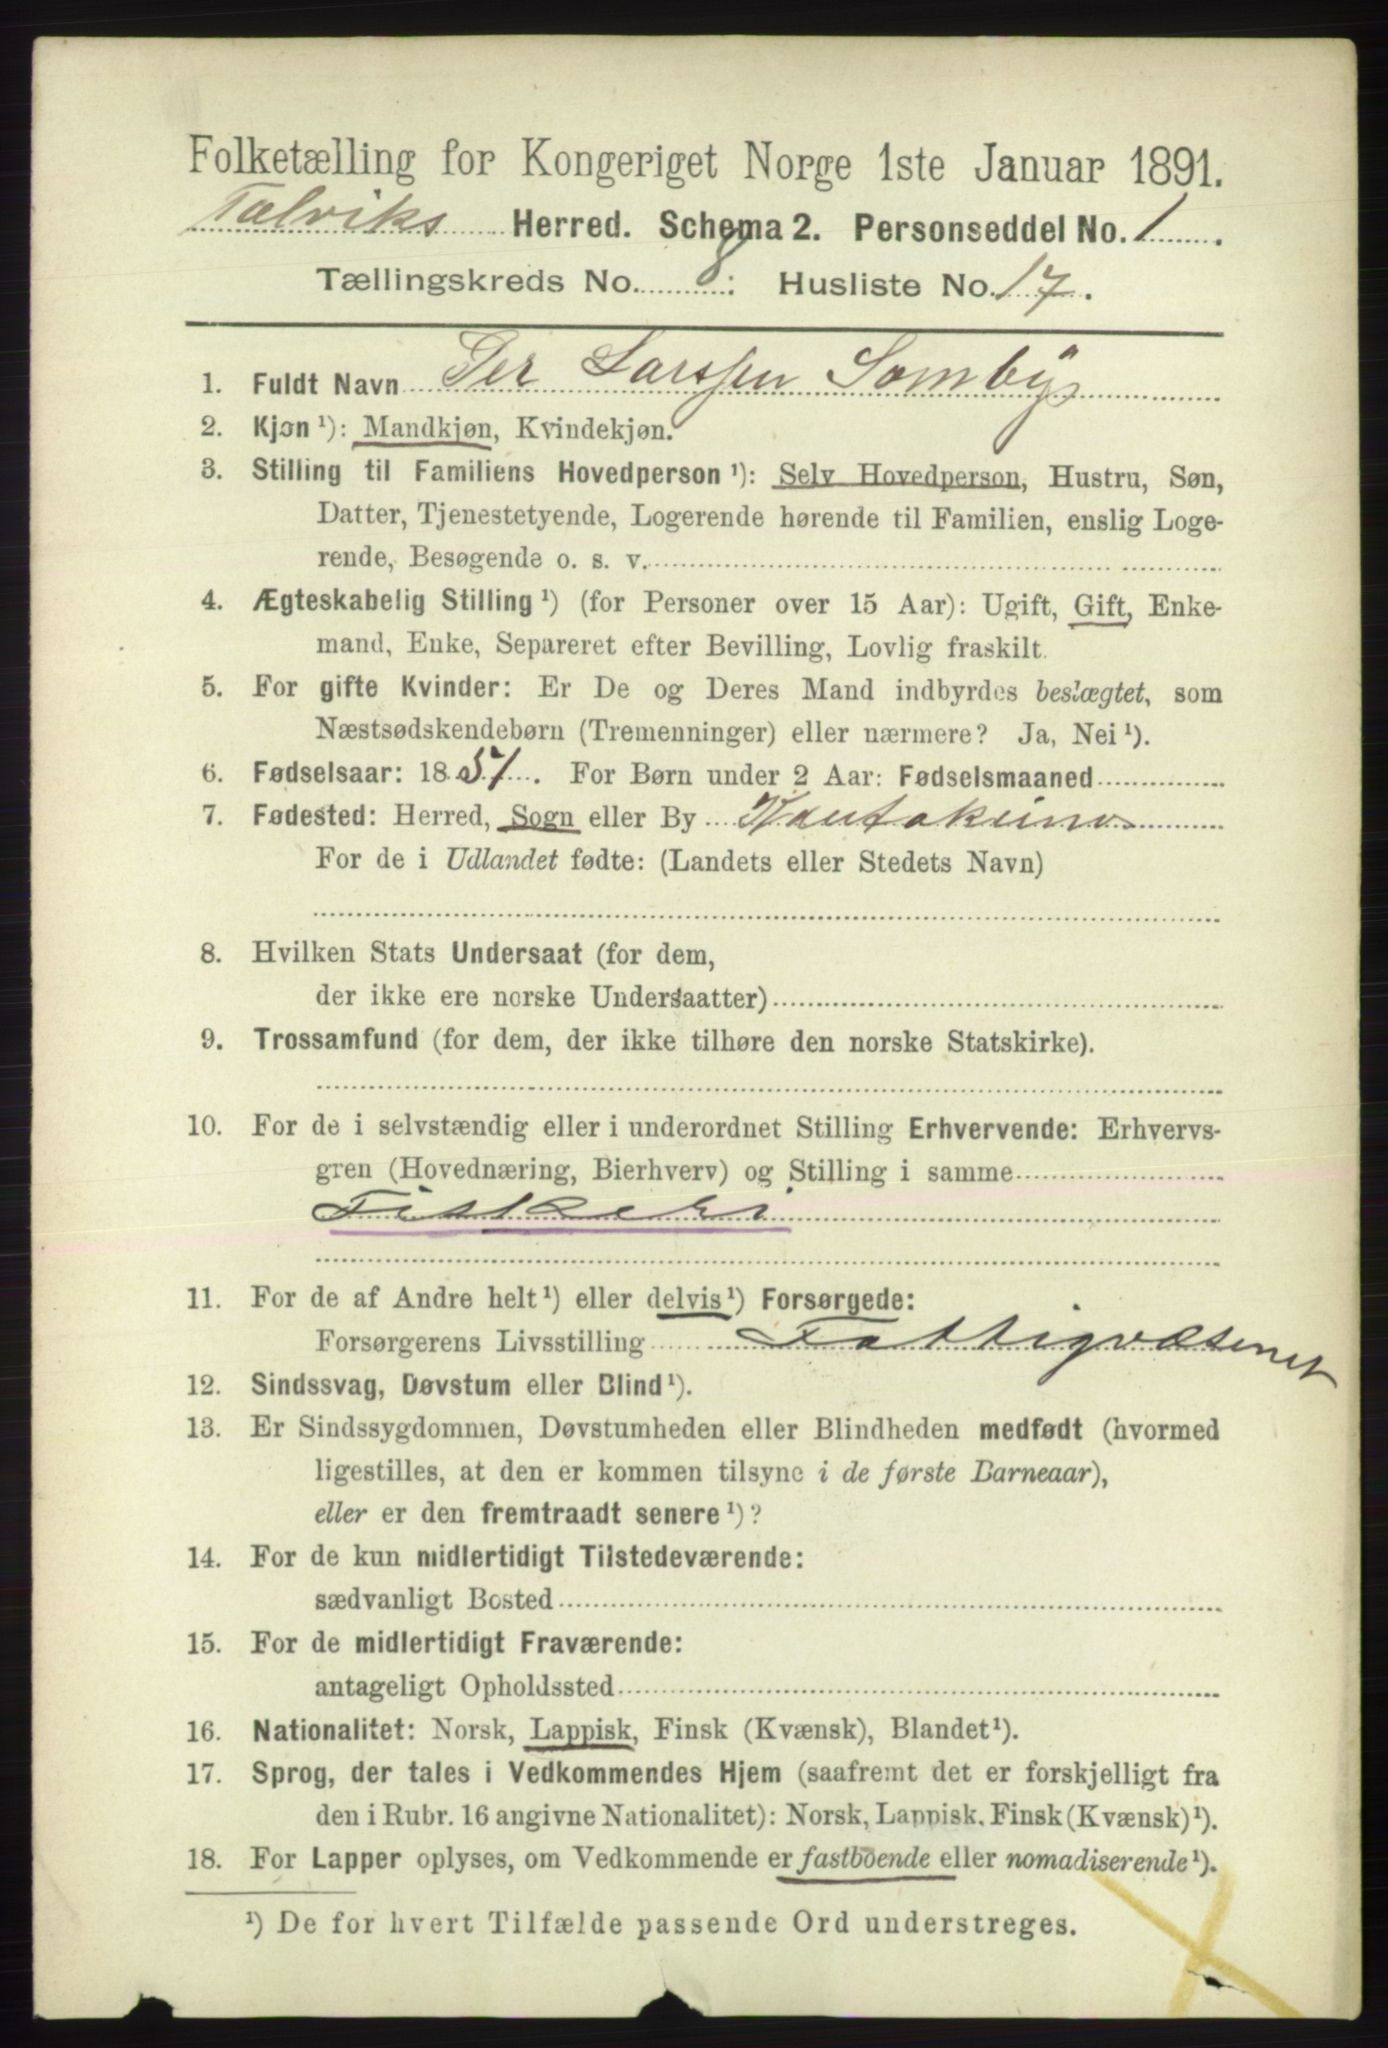 Folketælling for Kongeriget Norge 1ste Januar 1891.
Talviks Herred. Schema 2. Personseddel No. 1.
Tællingskreds No. 8: Husliste No. 17.
1. Fuldt Navn Per Larssen Somby
2. Kjøn ¹): Mandkjøn, Kvindekjøn.
3. Stilling til Familiens Hovedperson ¹): Selv Hovedperson, Hustru, Søn,
Datter, Tjenestetyende, Logerende hørende til Familien, enslig Loge-
rende, Besøgende o. s. v.
4. Ægteskabelig Stilling ¹) (for Personer over 15 Aar): Ugift, Gift, Enke-
mand, Enke, Separeret efter Bevilling, Lovlig fraskilt.
5. For gifte Kvinder: Er De og Deres Mand indbyrdes beslægtet, som
Næstsødskendebørn (Tremenninger) eller nærmere? Ja, Nei ¹).
6. Fødselsaar: 1857. For Børn under 2 Aar: Fødselsmaaned
7. Fødested: Herred, Sogn eller By Kautokeino
For de i Udlandet fødte: (Landets eller Stedets Navn)
8. Hvilken Stats Undersaat (for dem,
der ikke ere norske Undersaatter)
9. Trossamfund (for dem, der ikke tilhøre den norske Statskirke).
10. For de i selvstændig eller i underordnet Stilling Erhvervende: Erhvervs-
gren (Hovednæring, Bierhverv) og Stilling i samme
Fiskeri
11. For de af Andre helt ¹) eller delvis ¹) Forsørgede:
Forsørgerens Livsstilling Fattigvæsenet
12. Sindssvag, Døvstum eller Blind ¹).
13. Er Sindssygdommen, Døvstumheden eller Blindheden medfødt (hvormed
ligestilles, at den er kommen tilsyne i de første Barneaar),
eller er den fremtraadt senere ¹)?
14. For de kun midlertidigt Tilstedeværende:
sædvanligt Bosted
15. For de midlertidigt Fraværende:
antageligt Opholdssted
16. Nationalitet: Norsk, Lappisk, Finsk (Kvænsk), Blandet ¹).
17. Sprog, der tales i Vedkommendes Hjem (saafremt det er forskjelligt fra
den i Rubr. 16 angivne Nationalitet): Norsk, Lappisk, Finsk (Kvænsk) ¹).
18. For Lapper oplyses, om Vedkommende er fastboende eller nomadiserende ¹).
¹) De for hvert Tilfælde passende Ord understreges.